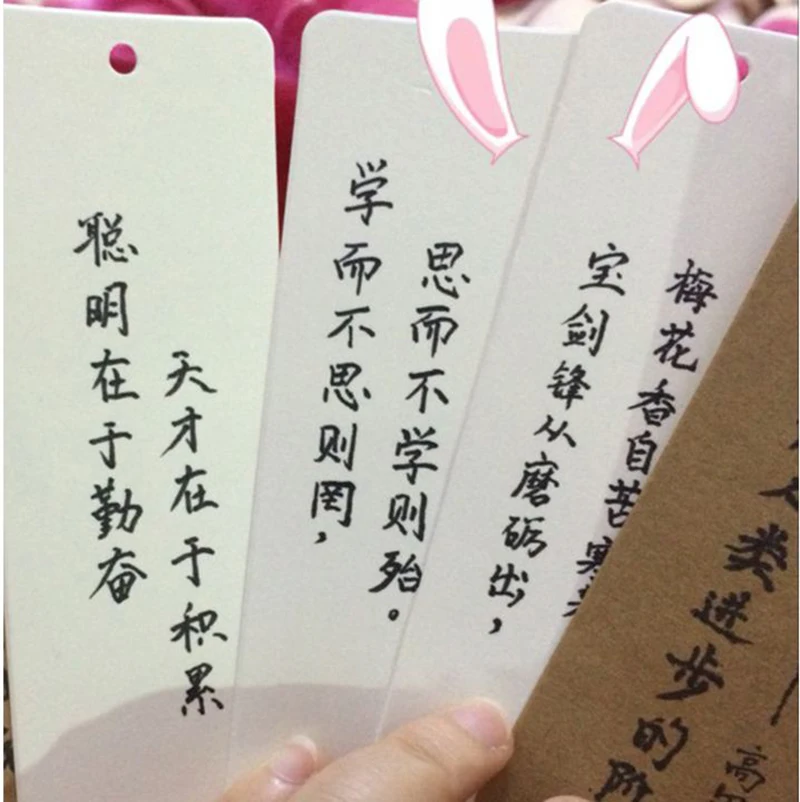 聪明在于勤奋
天才在于积累
学而不思则罔，
思而不学则殆。
宝剑锋从磨砺出，
梅花香自苦寒
类进步的阶
高